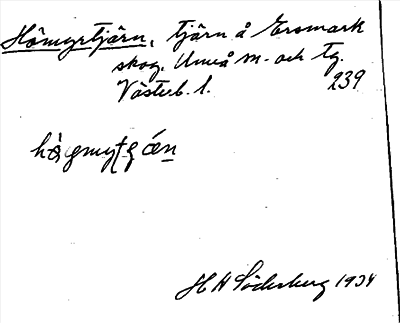 Håmyrtjärn, tjärn å Ersmark
skog, Umeå m. och tg.
Västerb. l. 239
H H Söderberg 1934